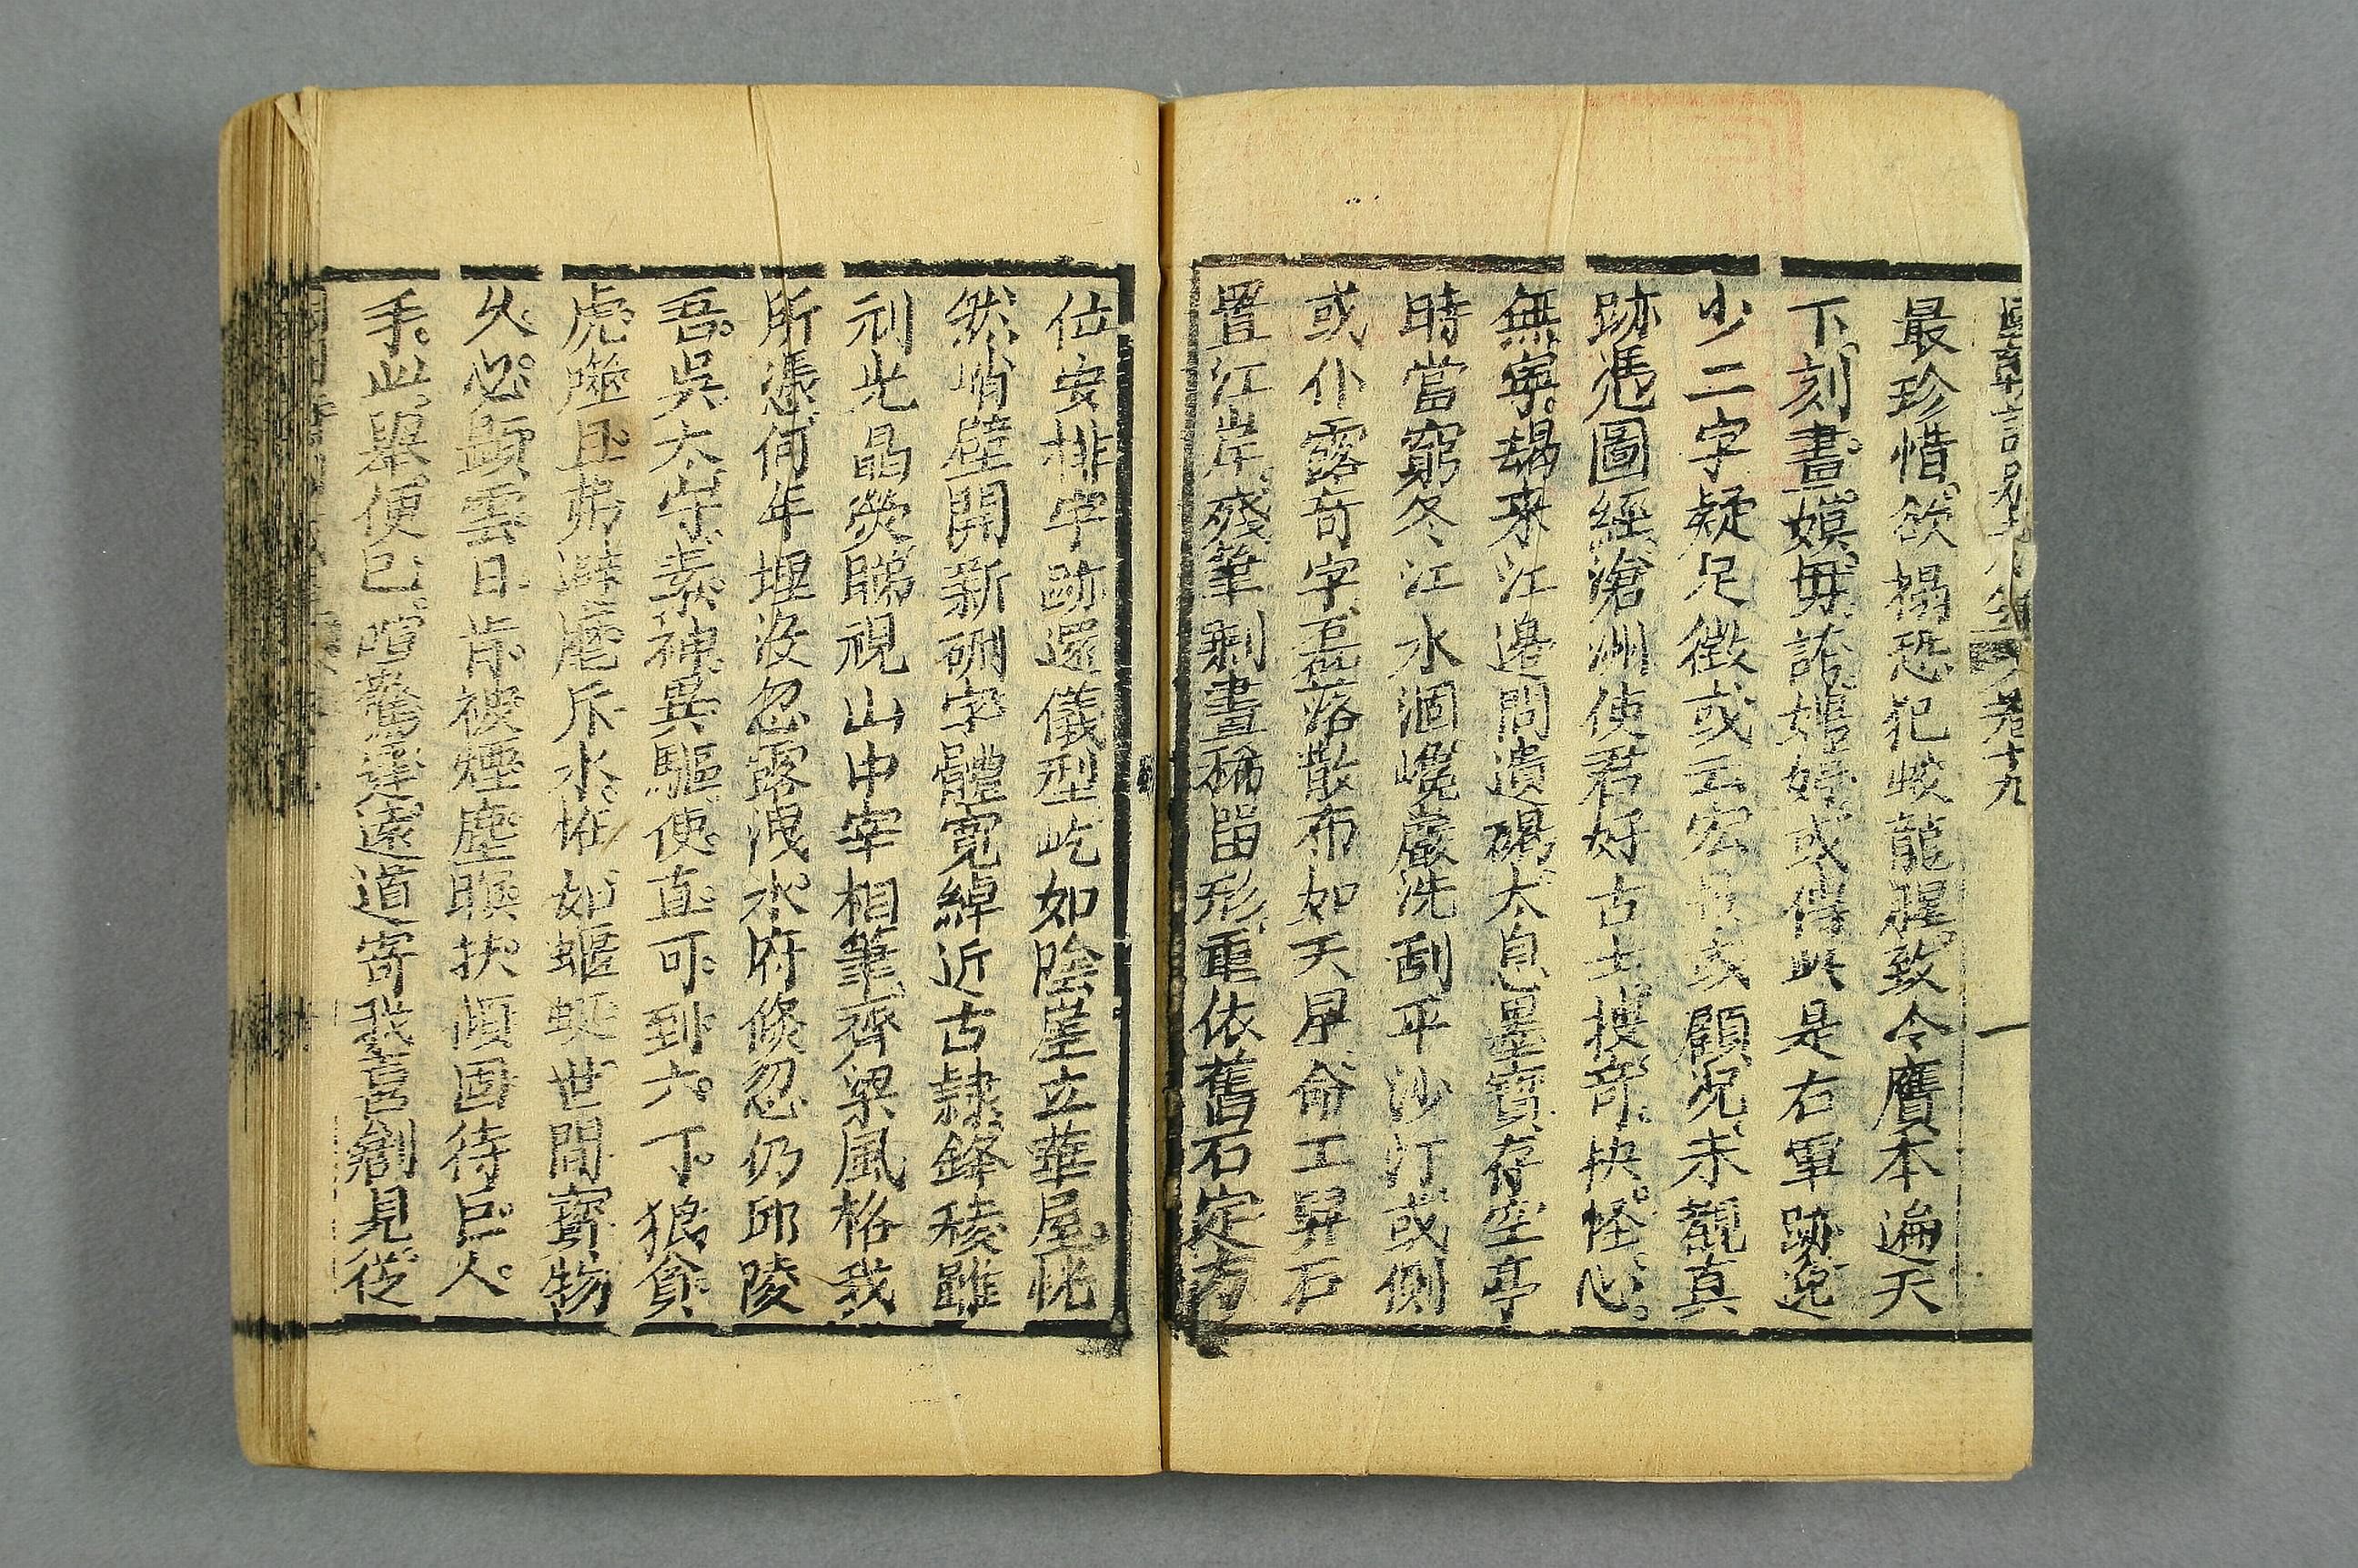 卷十九
一
最珍惜欲搨恐犯蛟龍瞋致令贋本遍天
下刻畫嫫毋誇嬉姱或傳此是右軍跡逸
少二字疑足徵或云宏景或顧況未覩真
跡憑圖經滄洲使君好古士搜奇抉怪心
無寧朅來江邊問遺碣太息墨寶存空亭
時當窮冬江水涸巉巖洗刮平沙汀或側
或仆露奇字磊落散布如天星命工舁石
置江岸殘筆剩畫稀留形重依舊石定方
位安排字跡還儀型屹如陰崖立華屋恍
然峭壁開新硎字體寬綽近古隸鋒稜雖
刓光晶熒睇視山中宰相筆齊梁風格我
所憑何年埋沒忽露洩水府倏忽仍邱陵
吾吳太守素神異驅使直可到六丁狼貪
虎噬且弗避塵斥水怪如蝘蜓世間寶物
久必顯雲日肯被煙塵暝扶傾固待巨人
手此舉便已喧驚霆遠道寄我喜創見從